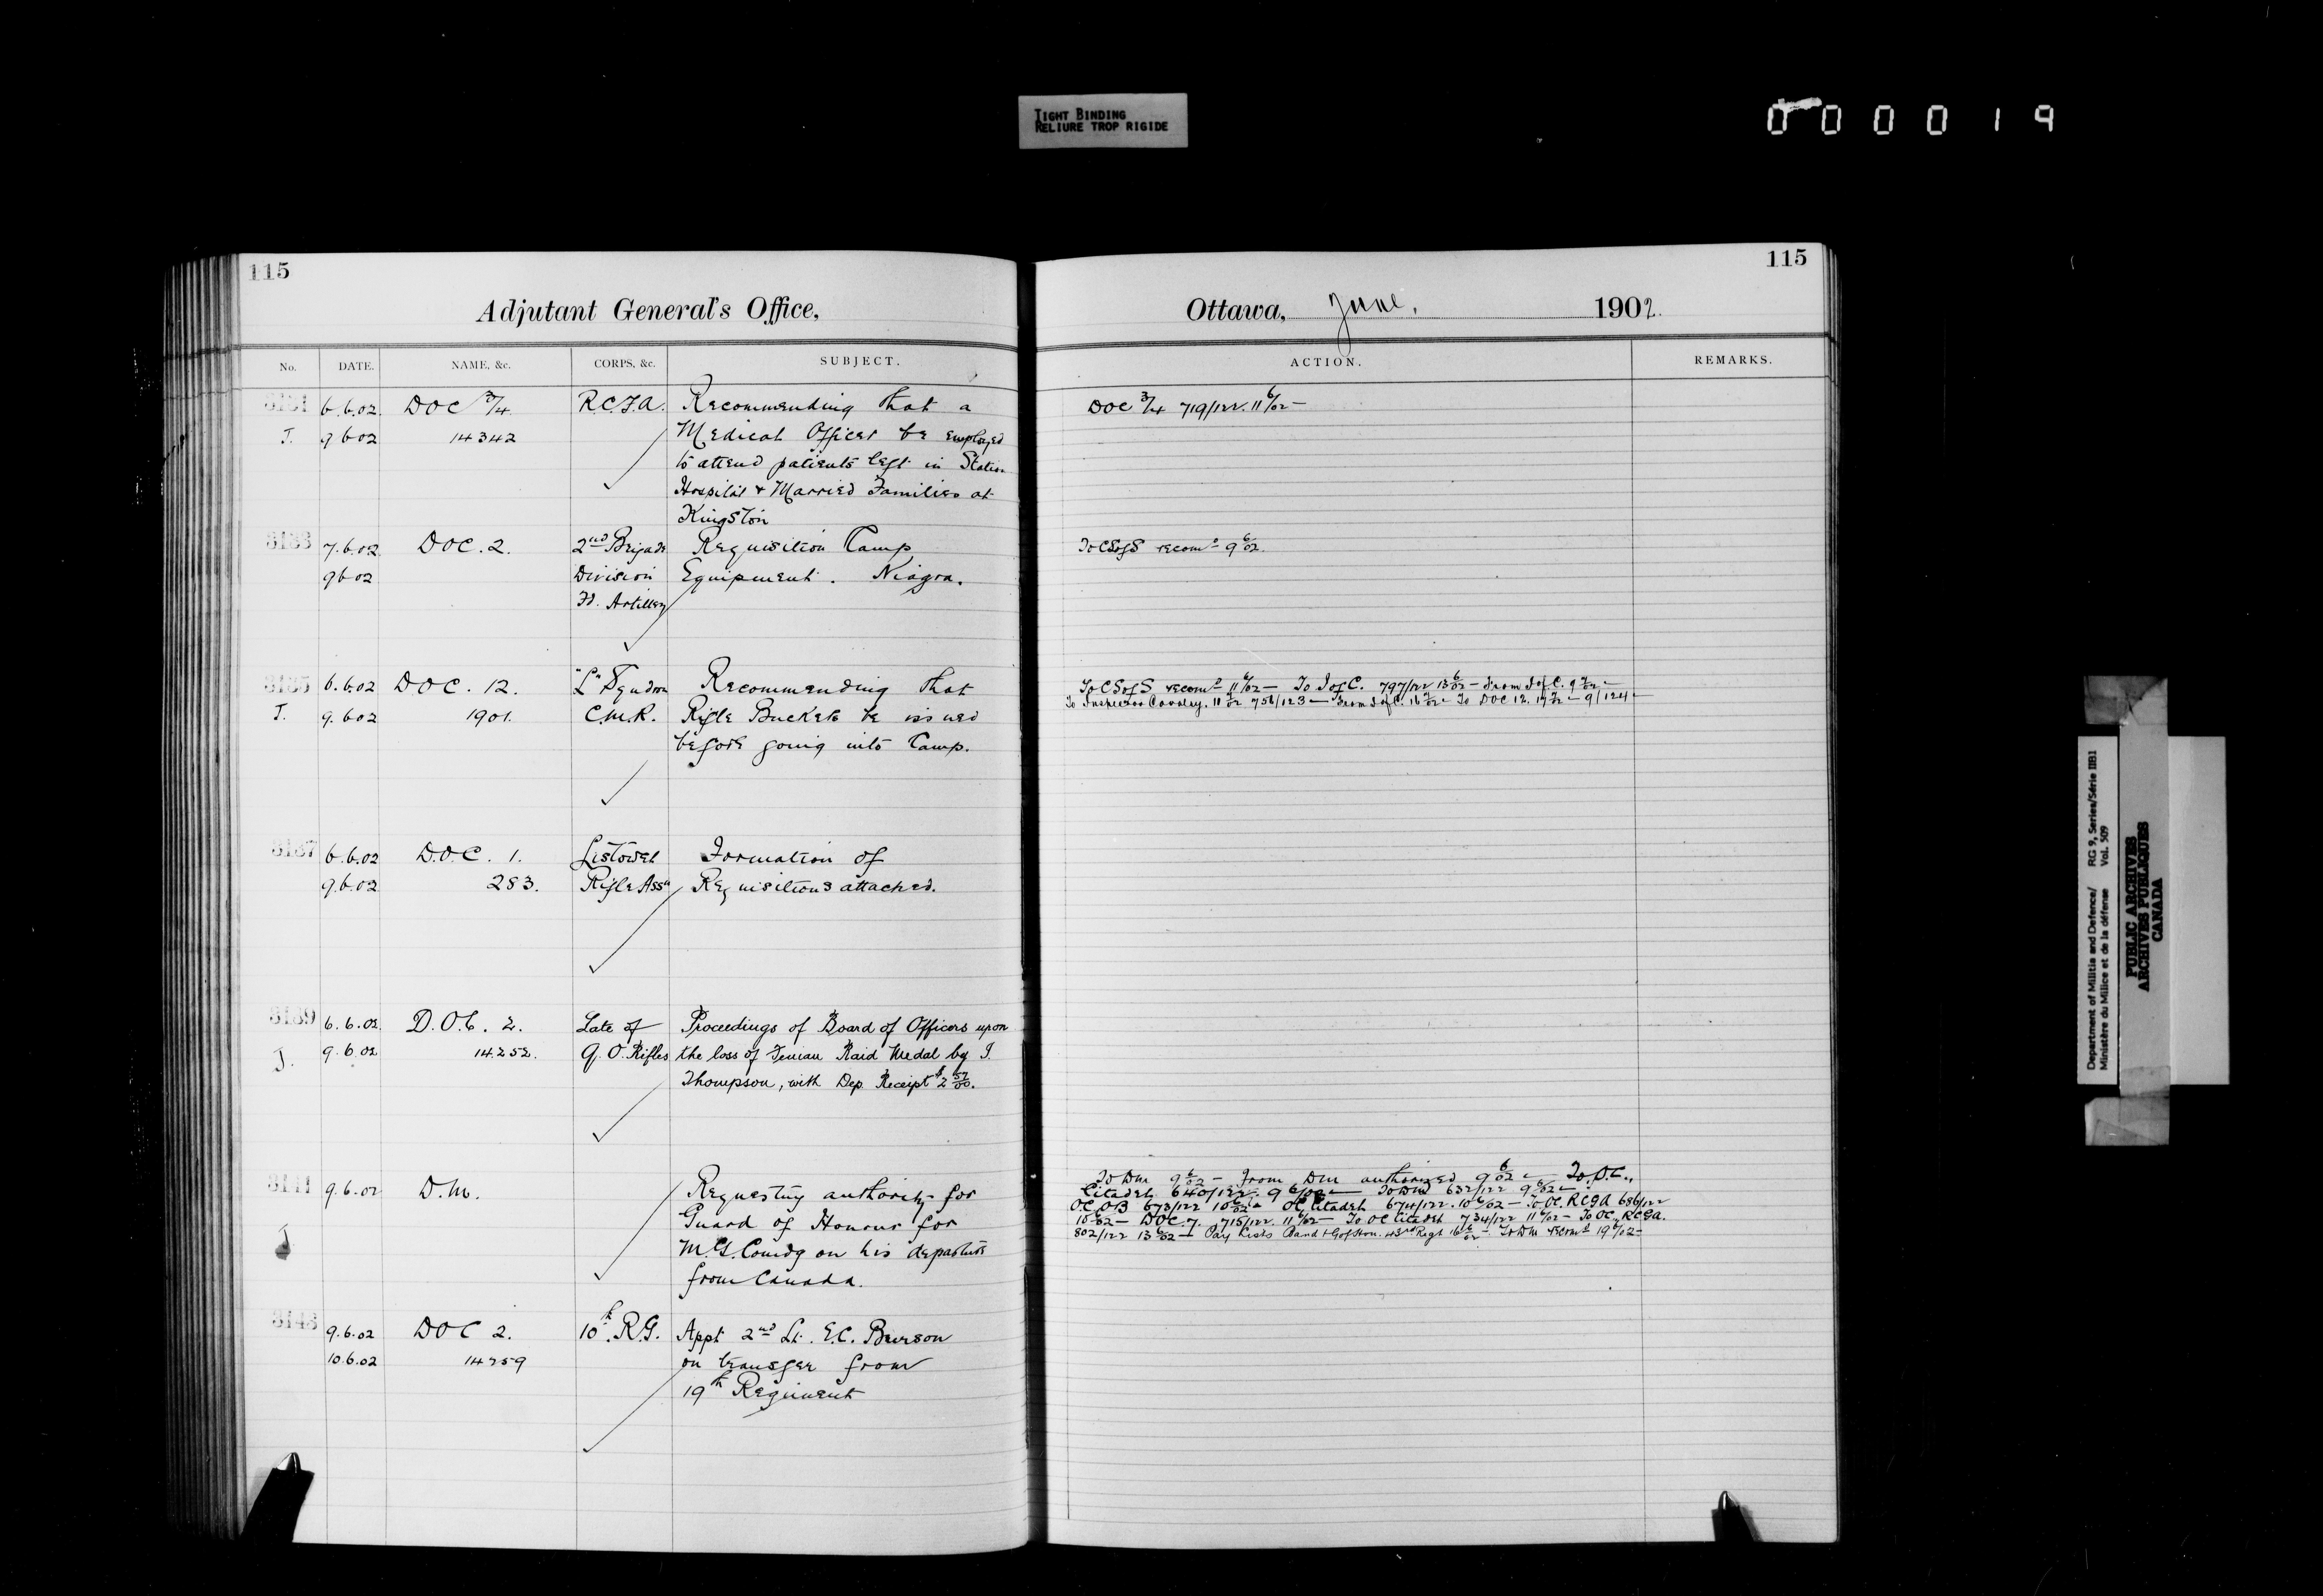 TIGHT BINDING
RELIURE TROP RIGIDE
000019
115
Adjutant General's Office,
No. DATE. NAME, &c. CORPS, &c. SUBJECT.
3131 6.6.02 DOC 3/4 R.C.F.A. Recommending that a
J. 9.6.02 14342 Medical Officer be employed
to attend patients left in Station
Hospital & Married Families at
Kingston
3133 7.6.02 DOC. 2. 2nd Brigade Requisition Camp
9.6.02 Division Equipment. Niagra.
Fd. Artillery
3135 6.6.02 DOC. 12. "L" Squdron Recommending that
J. 9.6.02 1901. C.M.R. Rifle Buckets be issued
before going into Camp.
3137 6.6.02 D.O.C. 1. Listowel Formation of
9.6.02 283. Rifle Assn Requisitions attached.
3139 6.6.02 D.O.C. 2. Late of Proceedings of Board of Officers upon
J. 9.6.02 14252. Q.O. Rifles the loss of Fenian Raid Medal by J.
Thompson, with Dep. Receipt $2
3141 9.6.02 D.M. Requesting authority for
J Guard of Honour for
M.G. Comdg on his departure
from Canada.
3143 9.6.02 DOC 2. 10th R.G. Appt 2nd Lt. E.C.
10.6.02 14259 on transfer from
19th Regiment
115
Ottawa, June, 1902.
ACTION. REMARKS.
DOC 3/4 719/122. 11 6/02 —
To CSofS recomd 9 6/02.
To CSofS recomd 11 6/02 — To I of C. 797/122 13 6/02 — From I of C. 9 7/02 —
To Inspector Cavalry. 11 7/02 756/123 — From I of C. 16 7/02 — To DOC 12. 17 7/02 — 9/124 —
To DM 9 6/02 — From DM authorized 9 6/02 — To O.C.,
Citadel 640/122. 9 6/02 — To DM 632/122 9 6/02 —
673/122 10 6/02 OC Citadel 674/122. 10 6/02 — To OC. RCGA 686/122
10 6/02 — DOC. 7. 715/122. 11 6/02 — To OC Citadel 734/122 11 6/02 — To OC. RCGA.
802/122 13 6/02 — Pay Lists Band & G of Hon. 43rd Regt 16 6/02 — To DM recomd 19 6/02 —
Department of Militia and Defence/ RG 9, Series/Série IIB1
Ministère du Milice et de la défense Vol. 509
PUBLIC ARCHIVES
ARCHIVES PUBLIQUES
CANADA